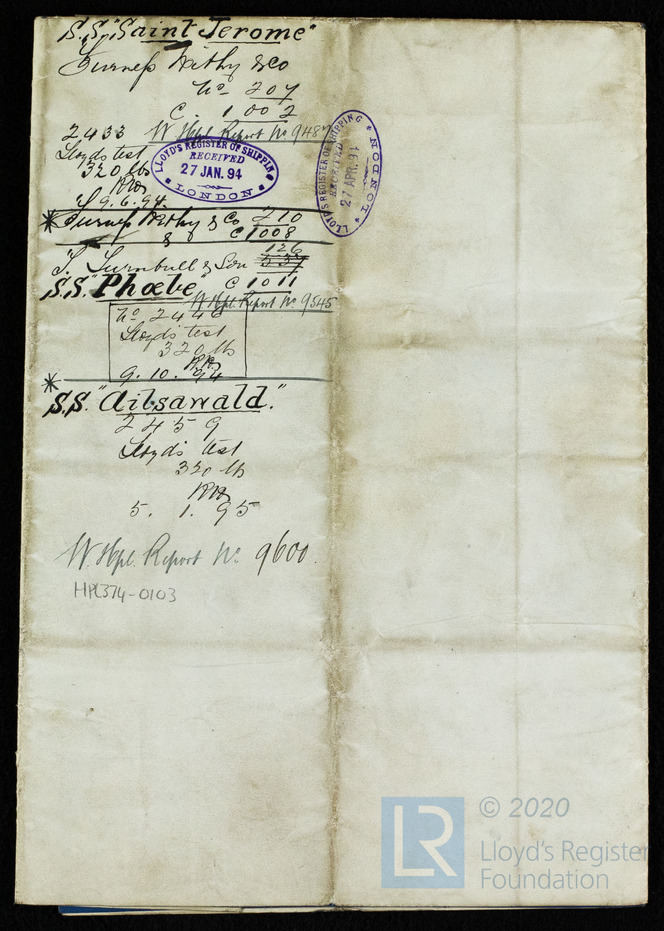 S.S. "Saint Jerome"
Furness Withy & Co
No 207
C. 1002
2433 W. Hpl. Report No 9487
Lloyds test
320 lbs
9.6.94
LLOYD'S REGISTER OF SHIPPING
RECEIVED
27 JAN. 94
LONDON
LLOYD'S REGISTER OF SHIPPING
RECEIVED
27 APR. 94
LONDON
* Furness Withy & Co 210
& C 1008
126
T. Turnbull & Son 537
S.S. "Phœbe" C 1011
W. Hpl. Report No 9545
No 2446
Lloyds test
320 lb
9.10.94
*
S.S. "Ailsawald."
2459
Lloyds test
320 lb
5.1.95
W. Hpl. Report No. 9600.
HPL374-0103
LR
© 2020
Lloyd's Register
Foundation